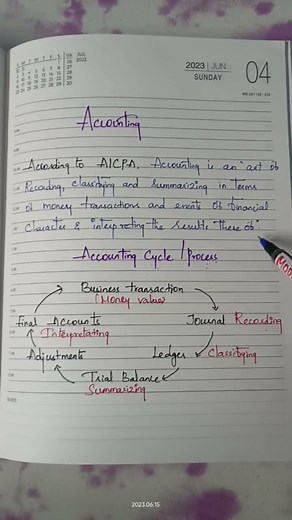 2023 | JUN
SUNDAY
04
Accounting
According to AICPA, Accounting is an "art of
Recording, classifying and summarizing in terms
of money transactions and events of financial
Character & interpreting the results there of".
Accounting Cycle / Process
Business transaction
(Money value)
Final Accounts
Interpretating
Journal Recording
Adjustments
Ledger Classifying
Trial Balance
Summarizing
2023.06.15